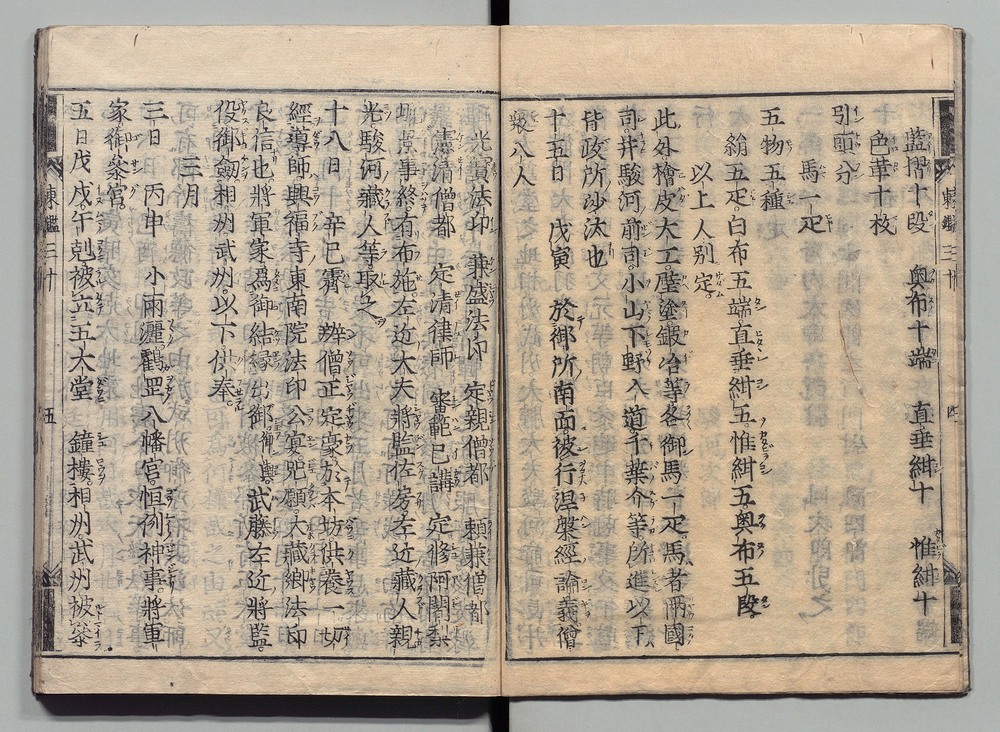 藍摺十段　奥布十端　直垂紺十　帷紺十
色革十枚
引頭分
馬一疋
五物五種
絹五疋白布五端直垂紺五帷紺五奥布五段
以上人別定
此外檜皮大工壁塗鍛冶等各御馬一疋馬者両國
司并駿河前司小山下野入道千葉介等所進以下
皆政所沙汰也
十五日　戊寅　於御所南面被行涅槃經論義僧
衆八人
東鑑三十　四
光寳法印　兼盛法印　定親僧都　頼兼僧都
定清律師　審範已講　定修阿闍梨
事終有布施左近大夫將監佐房左近藏人親
光駿河藏人等取之
十八日　辛巳霽　辨僧正定豪於本坊供養一切
經導師興福寺東南院法印公宴呪願大藏卿法印
良信也將軍家為御結縁出御御輿武藤左近將監
役御劔相州武州以下供奉
三月
三日　丙申　小雨灑鶴岡八幡宮恒例神事將軍
家御參宮
五日戊戌午剋被立五大堂　鐘樓相州武州被參
東鑑三十　五